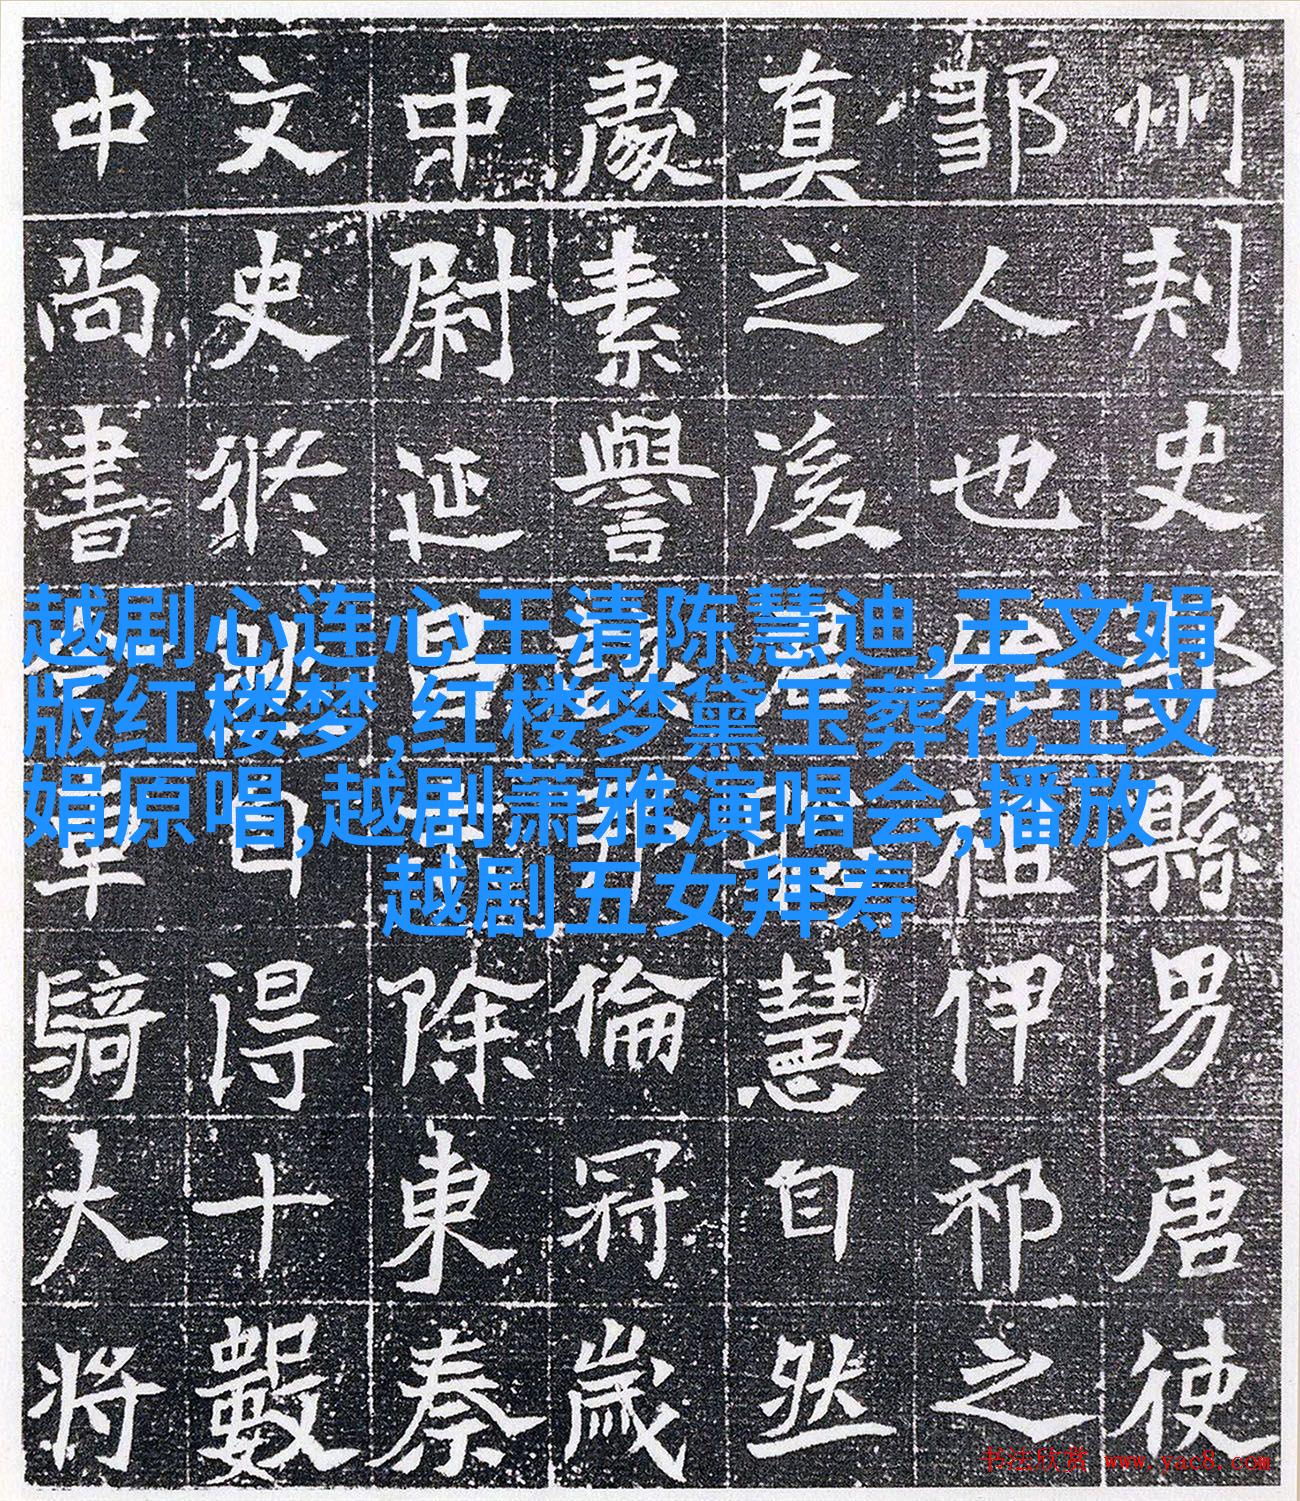 州刾史縣男唐使
鄒人也祖伊祁之
真之後慧自然
處素譽倫冠歲
中尉延昌除東秦
文史修日得十數
中尚書車騎大將
越剧心连心王清陈慧迪,王文娟
版红楼梦,红楼梦黛玉葬花王文
娟原唱,越剧萧雅演唱会,播放
越剧五女拜寿
书法欣赏 www.yac8.com